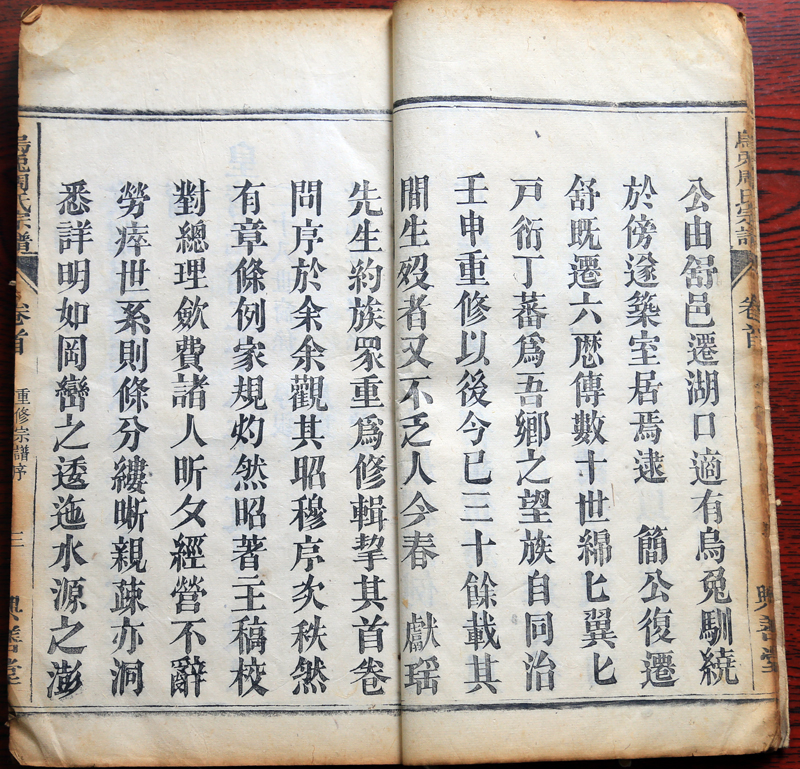 公由舒邑遷湖口適有烏兔馴繞
於傍遂築室居焉逮　簡公復遷
舒既遷六厯傳數十世綿匕翼匕
戸衍丁蕃爲吾鄉之望族自同治
壬申重修以後今已三十餘載其
間生殁者又不乏人今春　獻瑶
先生約族眾重爲修輯挈其首卷
問序於余余觀其昭穆序次秩然
有章條例家規灼然昭著主稿校
對總理斂費諸人昕夕經營不辭
勞瘁世系則條分縷晰親疎亦洞
悉詳明如岡巒之逶迤水源之澎
烏兔周氏宗譜
卷首
重修宗譜序
三
興善堂